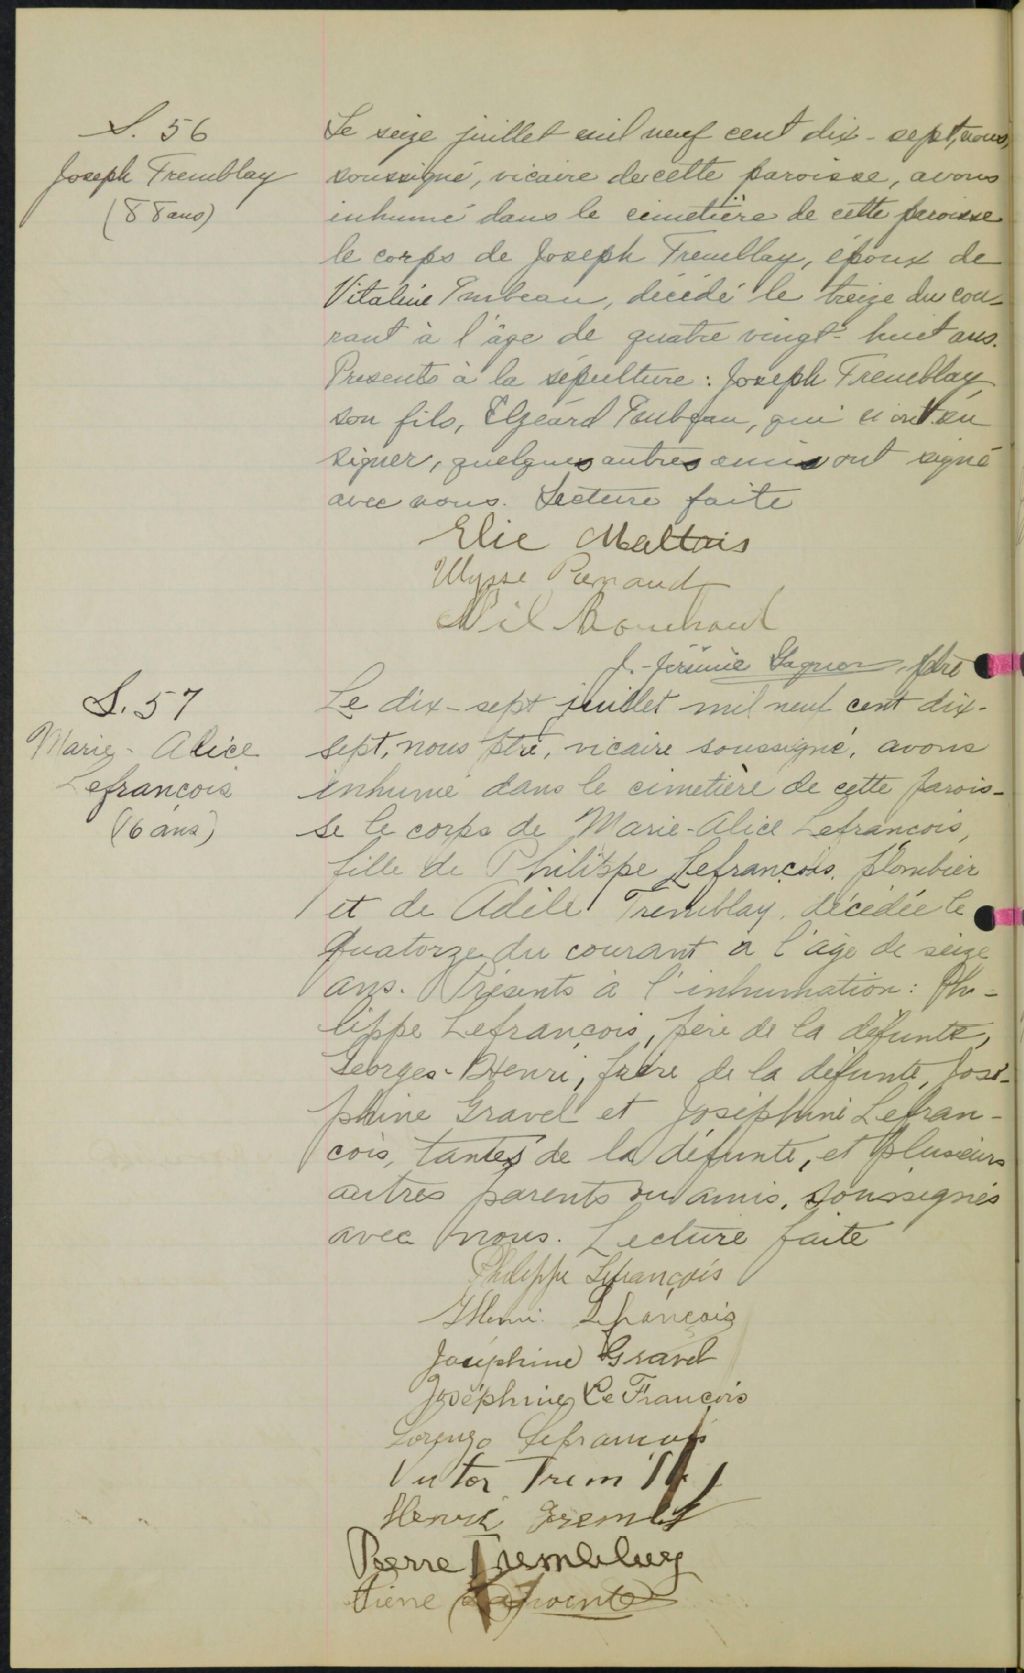 S. 56
Joseph Tremblay
(88 ans)
Le seize juillet mil neuf cent dix-sept, nous,
soussigné, vicaire de cette paroisse, avons
inhumé dans le cimetière de cette paroisse
le corps de Joseph Tremblay, époux de
Vitaline Imbeau, décédé le treize du cou-
rant à l'âge de quatre vingt-huit ans.
Présents à la sépulture : Joseph Tremblay
son fils, Elzéard Imbeau, qui n'ont su
signer, quelques autres amis ont signé
avec nous. Lecture faite
Elie Maltais
Ulysse Renaud
J.-Jérémie Gagnon, ptre
S. 57
Marie-Alice
Lefrançois
(16 ans)
Le dix-sept juillet mil neuf cent dix-
sept, nous ptre, vicaire soussigné, avons
inhumé dans le cimetière de cette parois-
se le corps de Marie-Alice Lefrancois,
fille de Philippe Lefrançois, plombier
et de Adèle Tremblay, décédée le
quatorze du courant à l'âge de seize
ans. Présents à l'inhumation : Phi-
lippe Lefrancois, père de la défunte,
Georges-Henri, frère de la défunte, José-
phine Gravel et Joséphine Lefran-
cois, tantes de la défunte, et plusieurs
autres parents ou amis, soussignés
avec nous. Lecture faite
Philippe Lefrançois
GHenri Lefrançois
Joséphine Gravel
Joséphine LeFrancois
Lorenzo Lefrancois
Victor Tremblay
Henri Tremblay
Pierre Tremblay
Lapointe